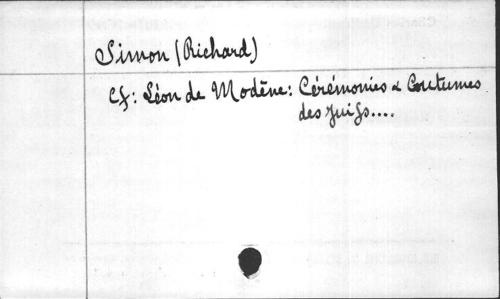 Simon (Richard)
Cf: Léon de Modène: Cérémonies & Coutumes
des Juifs....